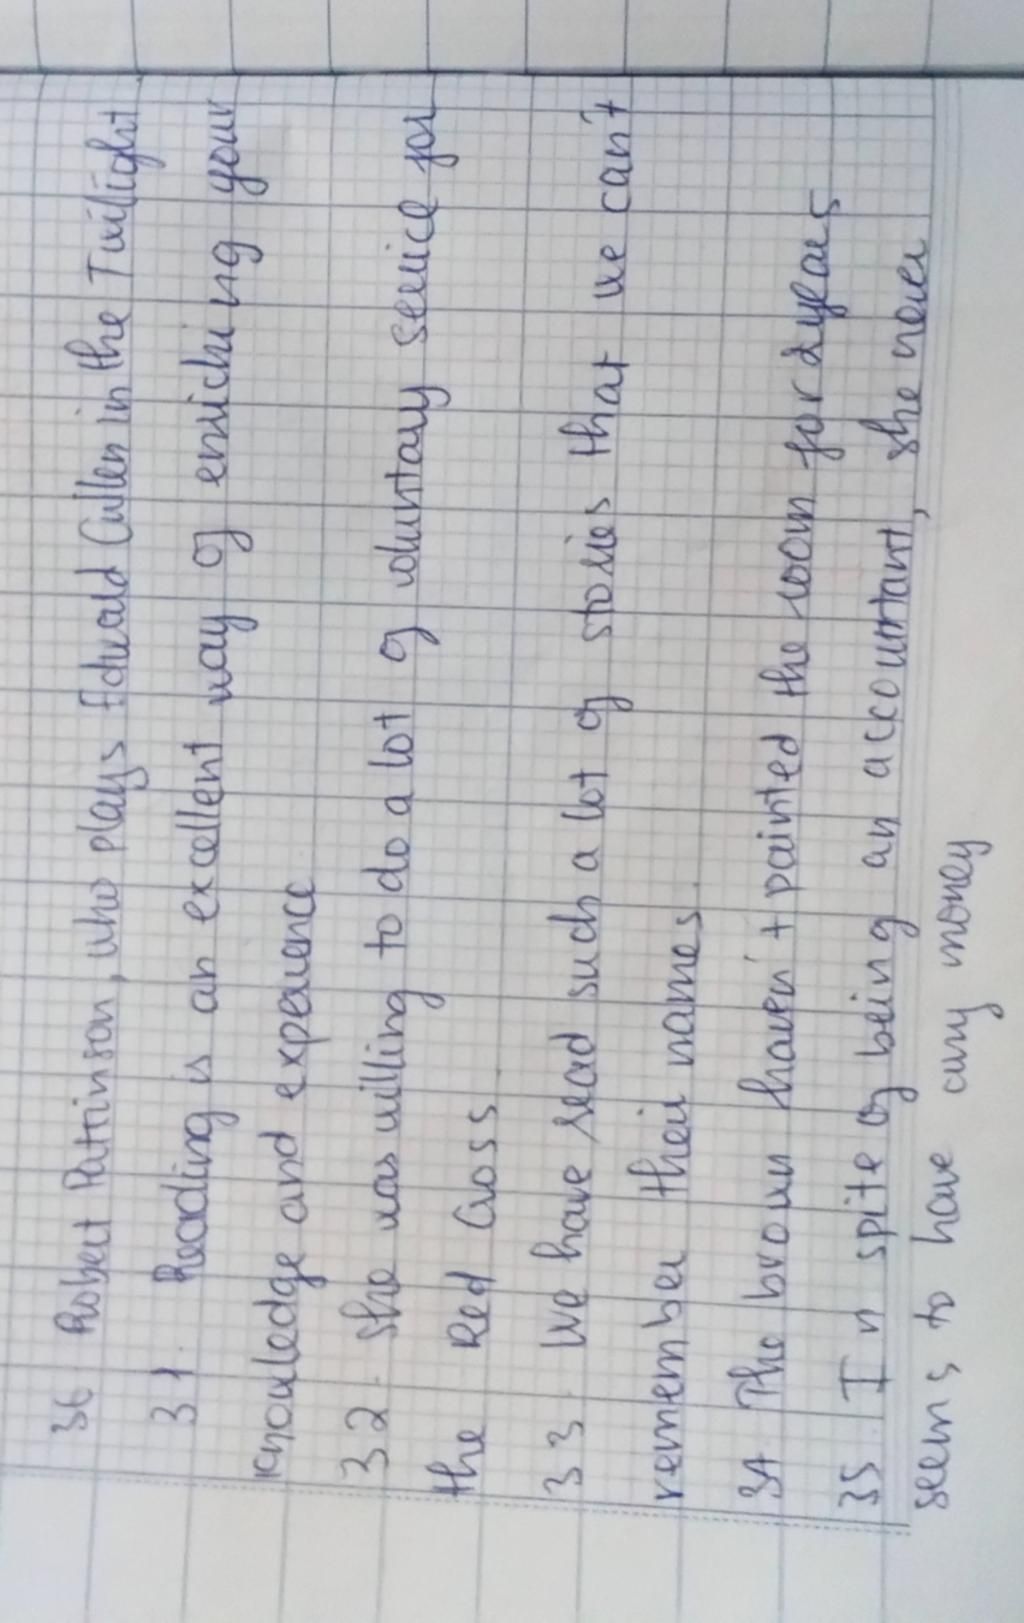 36 Robert Pattinson, who plays Edward Cullen in the Twilight
31. Reading is an excellent way of enriching your
knowledge and experience
32. She was willing to do a lot of voluntary service for
the Red Cross
33. We have read such a lot of stories that we can't
remember their names.
34 The brown haven't painted the room for 2 years
35. In spite of being an accountant, she never
seems to have any money